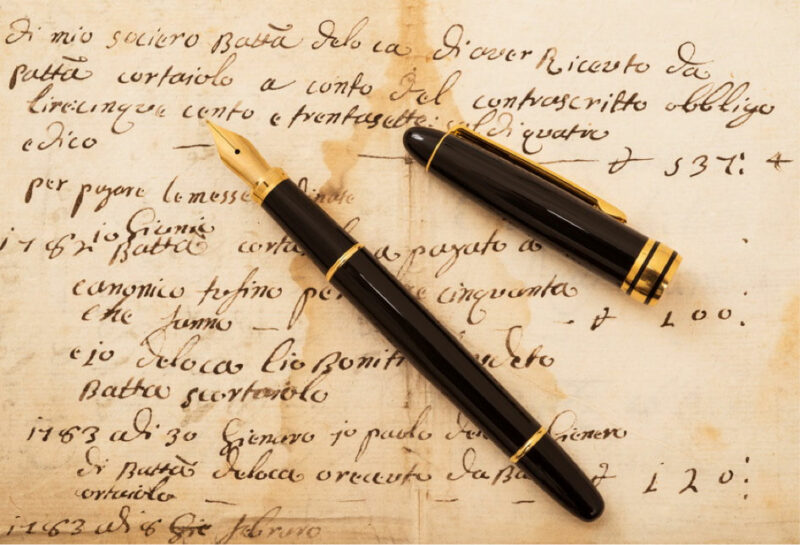 di mio sociero Battã deloca di aver Riceuto da
Battã cortaiolo a conto del contrascritto obbligo
lire cinque cento e trentasette: soldi quatro
e dico — — 537: 4
per pagare le messe
1782 10 Giunio Battã a pagato a
canonico tofino cinquanta
che fanno — 100:
e io deloca lio Boniti
Batta scortaiolo
1783 adi 30 Gienaro io paolo Gienero
di Battã deloca o receuto da
cortaiolo — 120:
1783 adi 8 febraro